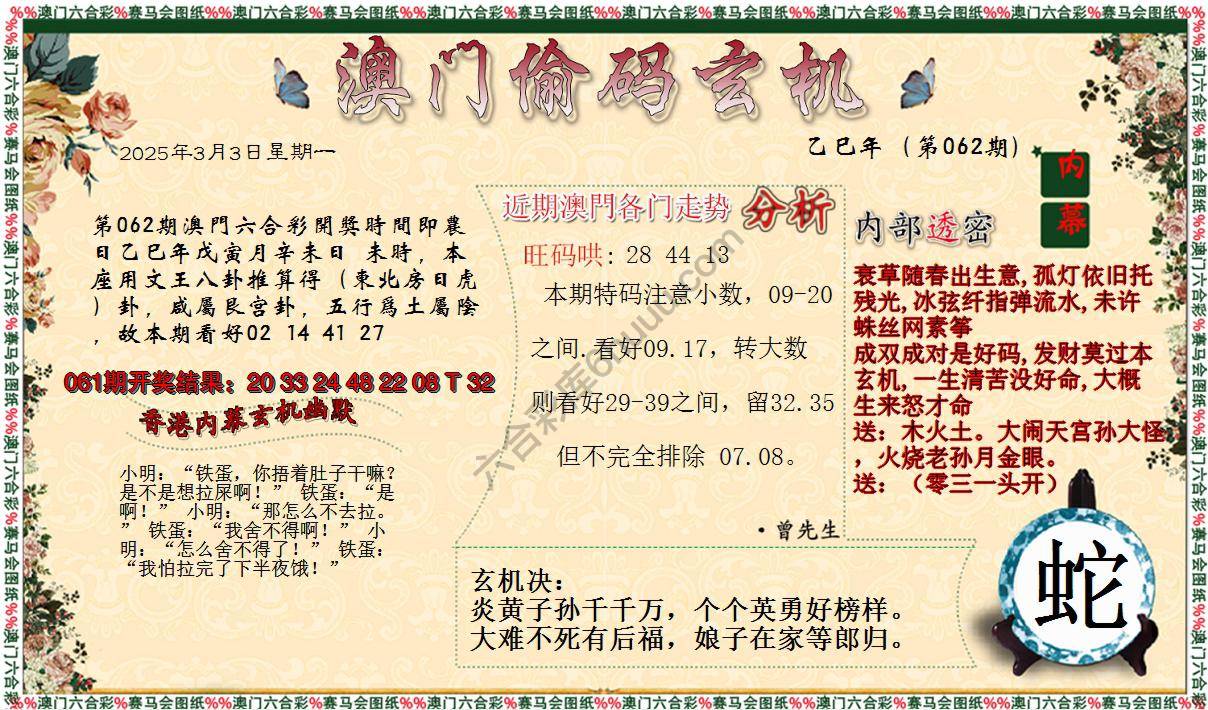 %%澳门六合彩%赛马会图纸%%澳门六合彩%赛马会图纸%%澳门六合彩%赛马会图纸%%澳门六合彩%赛马会图纸%%澳门六合彩%赛马会图纸%%澳门六合彩%赛马会图纸%%
澳门偷码玄机
2025年3月3日星期一
乙巳年（第062期）
内
幕
第062期澳門六合彩開獎時間即農
日乙巳年戊寅月辛未日 未時，本
座用文王八卦推算得（東北房日虎
）卦，咸屬艮宫卦，五行爲土屬陰
，故本期看好02 14 41 27
061期开奖结果：20 33 24 48 22 08 T 32
香港内幕玄机幽默
小明：“铁蛋，你捂着肚子干嘛？
是不是想拉屎啊！” 铁蛋：“是
啊！” 小明：“那怎么不去拉。
” 铁蛋：“我舍不得啊！” 小
明：“怎么舍不得了！” 铁蛋：
“我怕拉完了下半夜饿！”
近期澳門各门走势 分析
旺码哄: 28 44 13
本期特码注意小数，09-20
之间.看好09.17，转大数
则看好29-39之间，留32.35
但不完全排除 07.08。
·曾先生
内部透密
衰草随春出生意,孤灯依旧托
残光,冰弦纤指弹流水,未许
蛛丝网素筝
成双成对是好码,发财莫过本
玄机,一生清苦没好命,大概
生来怒才命
送：木火土。大闹天宫孙大怪
，火烧老孙月金眼。
送：（零三一头开）
玄机决：
炎黄子孙千千万，个个英勇好榜样。
大难不死有后福，娘子在家等郎归。
蛇